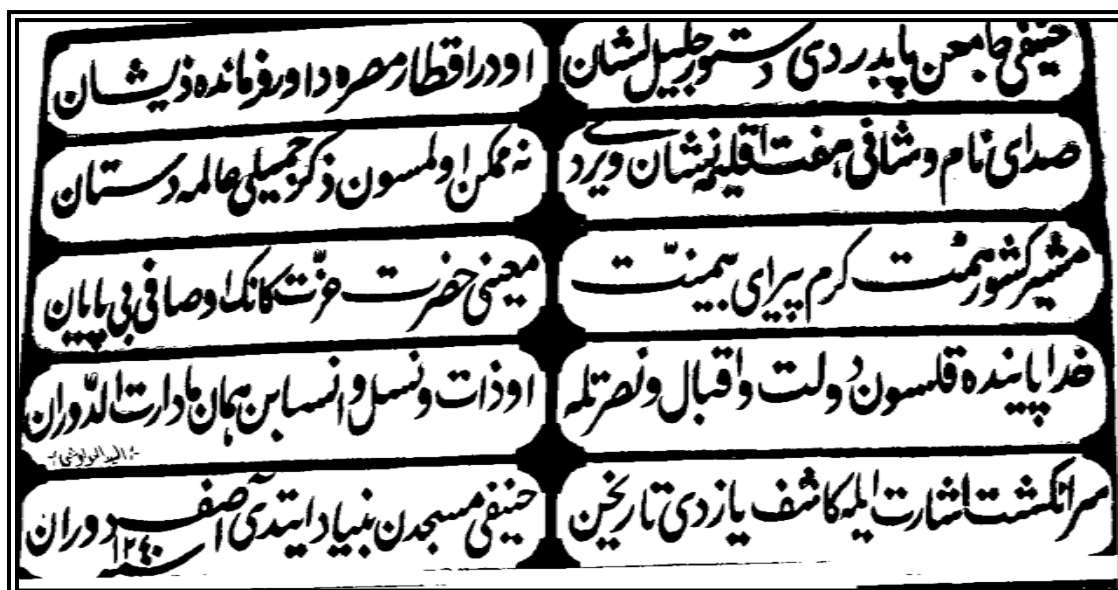 حنيفى جامعن ياپدردى دستور جليل الشان اودر اقطار مصره داور فرمانده ذيشان
صداى نام و شانى هفت اقليمه نشان ويردى نه ممكن اولمسون ذكر جميلى عالمه دستان
مشير كشور همت كرم پيراى بيمنّت معينى حضرت عزّت كانك اوصافى بى پايان
خدا پاينده قلسون دولت و اقبال و نصرتله او ذات و نسل و انسابن همان مادارت الدّوران
السيد
سرانكشت اشارت ايله كاشف يازدى تاريخن حنيفى مسجدن بنياد ايتدى آصف دوران
سنه ١٢٤٠